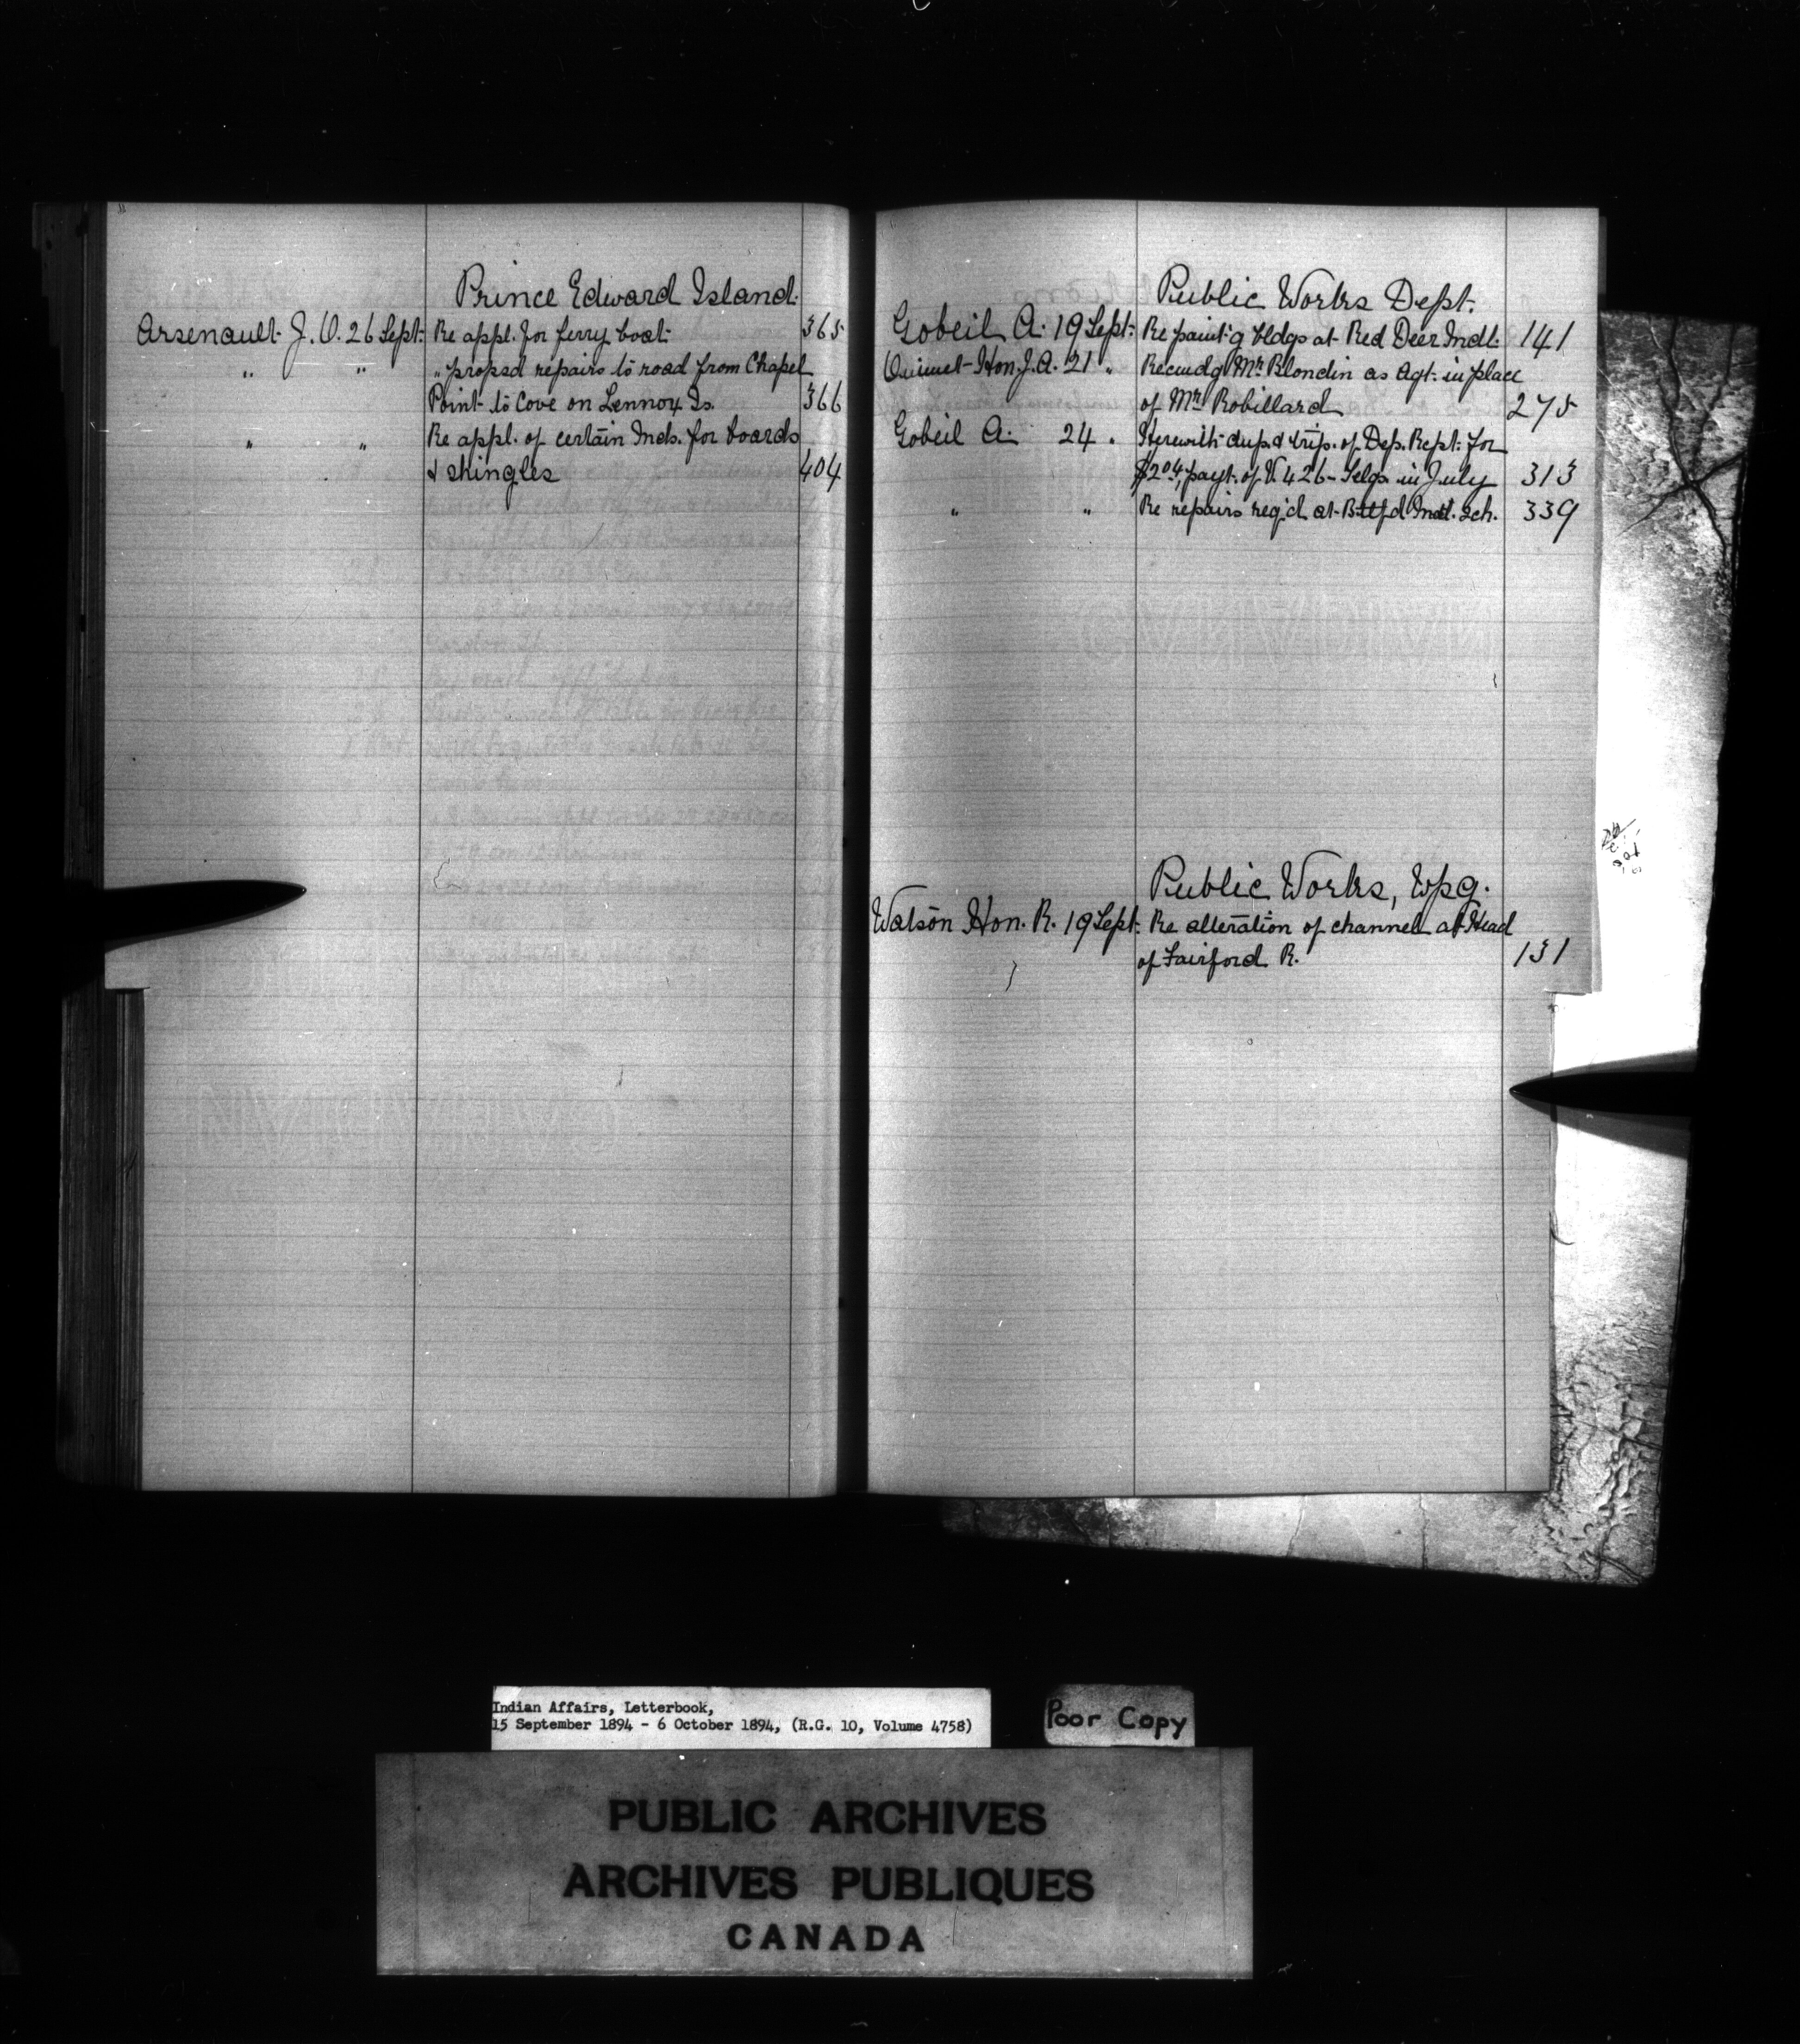 Prince Edward Island.
Arsenault J. O. 26 Sept. Re appl. for ferry boat 365
" " " propsd repairs to road from Chapel
Point to Cove on Lennox Is. 366
" " Re appl. of certain Inds. for boards
& shingles 404
Public Works Dept.
Gobeil A. 19 Sept. Re paint'g bldgs at Red Deer Indl. 141
Ouimet Hon. J. A. 21 " Recmdg Mr Blondin as Agt. in place
of Mr Robillard 275
Gobeil A. 24 " Herewith dup. & trip. of Dep. Rept. for
$2.04, payt. of V. 426 - Telgs in July 313
" " Re repairs req'd at Battfd Indl. Sch. 339
Public Works, Wpg.
Watson Hon. R. 19 Sept. Re alteration of channel at Head
of Fairford R. 131
Indian Affairs, Letterbook,
15 September 1894 - 6 October 1894, (R.G. 10, Volume 4758)
Poor Copy
PUBLIC ARCHIVES
ARCHIVES PUBLIQUES
CANADA